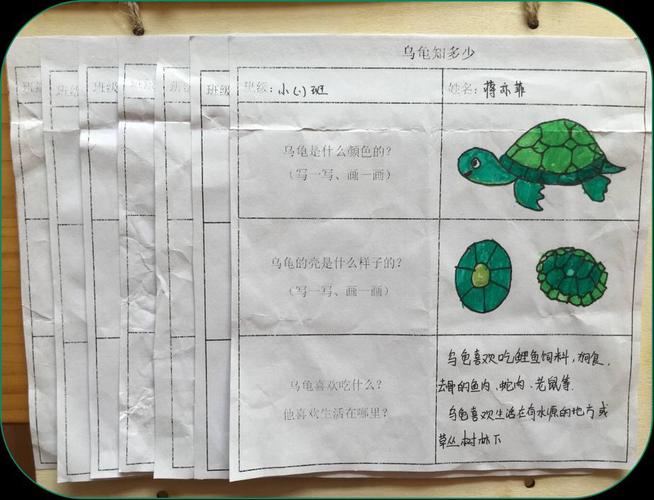 乌龟知多少
班级
班级
班级
班级
班级
班级
班级：小（一）班
姓名：蒋亦菲
乌龟是什么颜色的？
（写一写、画一画）
乌龟的壳是什么样子的？
（写一写、画一画）
乌龟喜欢吃什么？
他喜欢生活在哪里？
乌龟喜欢吃鲤鱼饲料，狗食，
去骨的鱼肉、蛇肉、老鼠等．
乌龟喜欢生活在有水源的地方或
草丛树林下